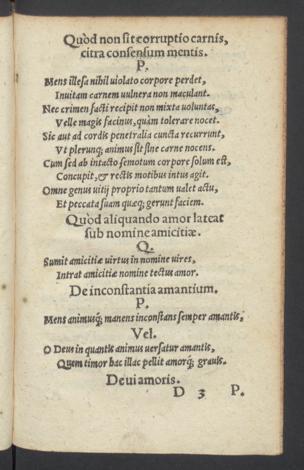 Quòd non sit corruptio carnis,
citra consensum mentis.
P.
Mens illesa nihil uiolato corpore perdet,
Inuitam carnem uulnera non maculant.
Nec crimen facti recipit non mixta uoluntas,
Velle magis facinus, quàm tolerare nocet.
Sic aut ad cordis penetralia cuncta recurrunt,
Vt plerunq; animus sit sine carne nocens.
Cum sed ab intacto semotum corpore solum est,
Concupit, & rectis motibus intus agit.
Omne genus uitij proprio tantum ualet actu,
Et peccata suam quæq; gerunt faciem.
Quòd aliquando amor lateat
sub nomine amicitiæ.
Q.
Sumit amicitiæ uirtus in nomine uires,
Intrat amicitiæ nomine tectus amor.
De inconstantia amantium.
P.
Mens animusq; manens inconstans semper amantis,
Vel.
O Deus in quantis animus uersatur amantis,
Quem timor hac illac pellit amorq; grauis.
De ui amoris.
D 3 P.